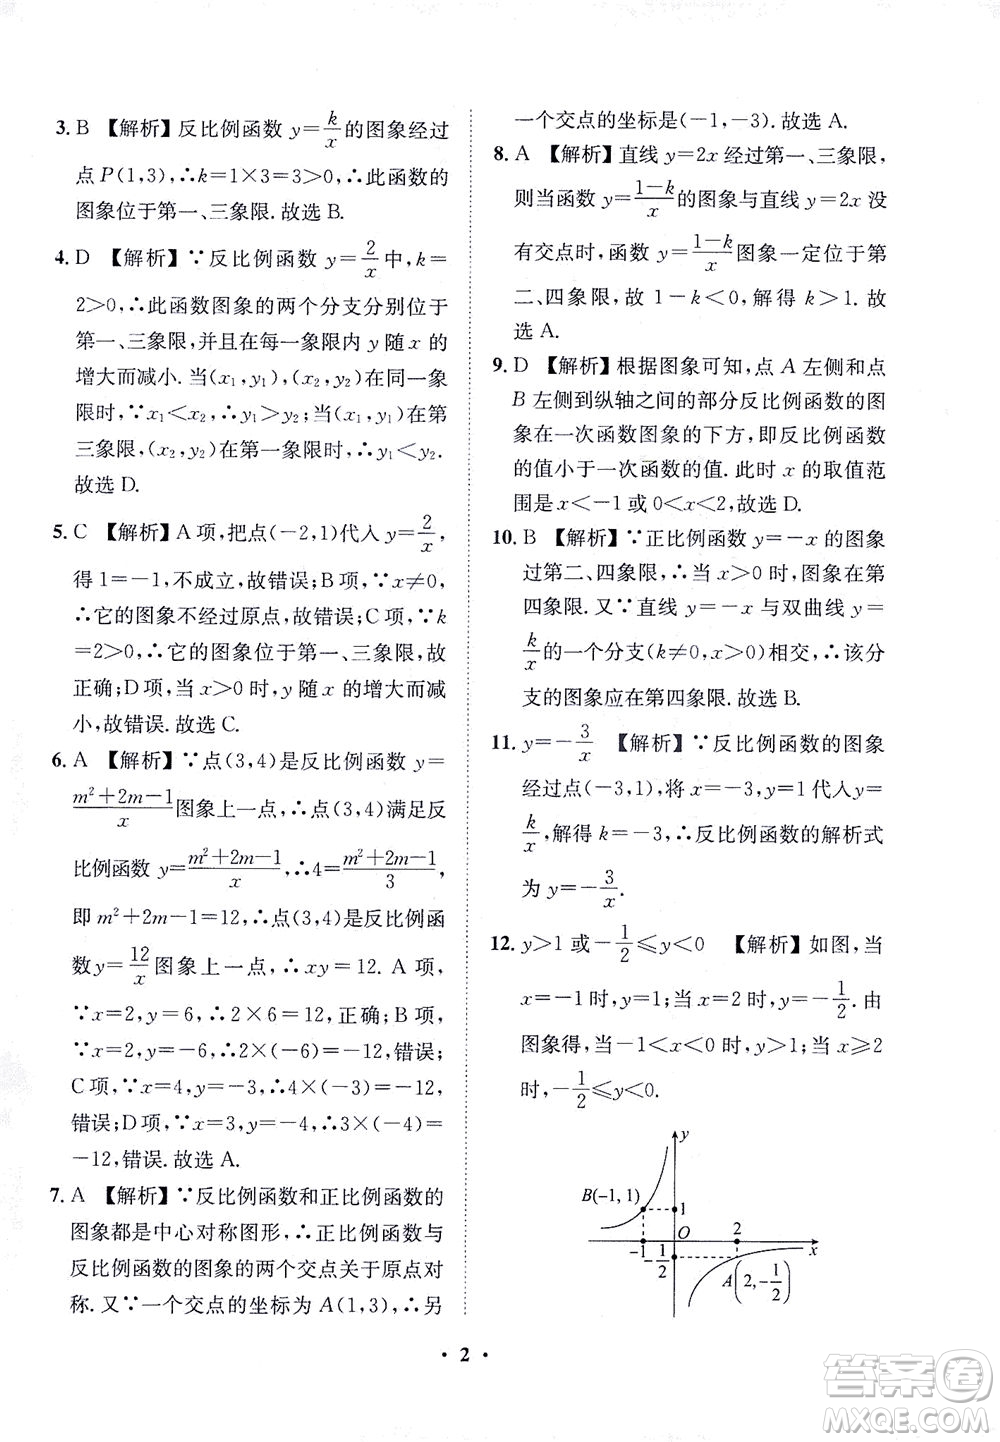 3. B 【解析】反比例函数 y=k/x 的图象经过
点 P(1,3),∴k=1×3=3>0,∴此函数的
图象位于第一、三象限.故选 B.
4. D 【解析】∵反比例函数 y=2/x 中,k=
2>0,∴此函数图象的两个分支分别位于
第一、三象限,并且在每一象限内 y 随 x 的
增大而减小.当(x₁,y₁),(x₂,y₂)在同一象
限时,∵x₁<x₂,∴y₁>y₂;当(x₁,y₁)在第
三象限,(x₂,y₂)在第一象限时,∴y₁<y₂.
故选 D.
5. C 【解析】A 项,把点(-2,1)代入 y=2/x,
得 1=-1,不成立,故错误;B 项,∵x≠0,
∴它的图象不经过原点,故错误;C 项,∵k
=2>0,∴它的图象位于第一、三象限,故
正确;D 项,当 x>0 时,y 随 x 的增大而减
小,故错误.故选 C.
6. A 【解析】∵点(3,4)是反比例函数 y=
(m²+2m-1)/x 图象上一点,∴点(3,4)满足反
比例函数 y=(m²+2m-1)/x,∴4=(m²+2m-1)/3,
即 m²+2m-1=12,∴点(3,4)是反比例函
数y=12/x 图象上一点,∴xy=12. A 项,
∵x=2,y=6,∴2×6=12,正确;B 项,
∵x=2,y=-6,∴2×(-6)=-12,错误;
C 项,∵x=4,y=-3,∴4×(-3)=-12,
错误;D 项,∵x=3,y=-4,∴3×(-4)=
-12,错误.故选 A.
7. A 【解析】∵反比例函数和正比例函数的
图象都是中心对称图形,∴正比例函数与
反比例函数的图象的两个交点关于原点对
称.又∵一个交点的坐标为 A(1,3),∴另
一个交点的坐标是(-1,-3).故选 A.
8. A 【解析】直线 y=2x 经过第一、三象限,
则当函数 y=(1-k)/x 的图象与直线 y=2x 没
有交点时,函数 y=(1-k)/x 图象一定位于第
二、四象限,故 1-k<0,解得 k>1.故
选 A.
9. D 【解析】根据图象可知,点 A 左侧和点
B 左侧到纵轴之间的部分反比例函数的图
象在一次函数图象的下方,即反比例函数
的值小于一次函数的值.此时 x 的取值范
围是 x<-1 或 0<x<2,故选 D.
10. B 【解析】∵正比例函数 y=-x 的图象
过第二、四象限,∴当 x>0 时,图象在第
四象限.又∵直线 y=-x 与双曲线 y=
k/x 的一个分支(k≠0,x>0)相交,∴该分
支的图象应在第四象限.故选 B.
11. y=-3/x 【解析】∵反比例函数的图象
经过点(-3,1),将 x=-3,y=1 代入 y=
k/x,解得 k=-3,∴反比例函数的解析式
为 y=-3/x.
12. y>1 或-1/2≤y<0 【解析】如图,当
x=-1 时,y=1;当 x=2 时,y=-1/2.由
图象得,当-1<x<0 时,y>1;当 x≥2
时,-1/2≤y<0.
y
B(-1,1)
1
O
2
-1
x
-1/2
A(2,-1/2)
· 2 ·
答案圈
MXQE.COM